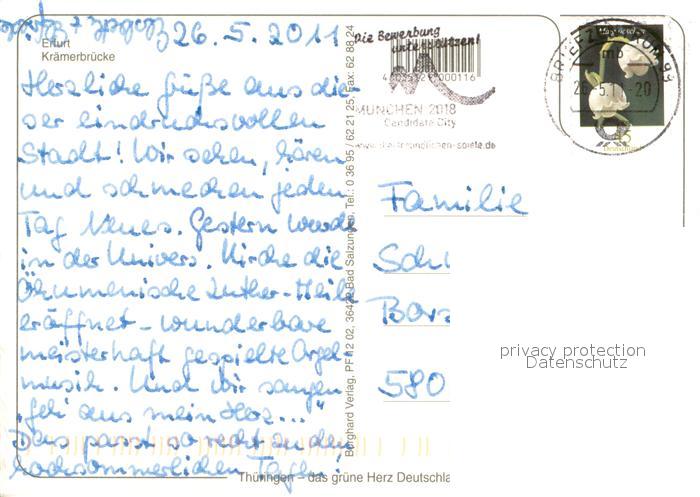 26.5.2011
Erfurt
Krämerbrücke
Herzliche Grüße aus die-
ser eindrucksvollen
Stadt! Wir sehen, hören
und schmecken jeden
Tag Neues. Gestern wurde
in der Univers. Kirche die
Ökumenische Luther-Meile
eröffnet - wunderbare
meisterhaft gespielte Orgel
musik. Und wir sangen
"Geh aus mein Herz..."
Das passt so recht zu den
hochsommerlichen Tagen!
Thüringen – das grüne Herz Deutschla
Borghard Verlag, PF 12 02, 36422 Bad Salzungen, Tel.: 0 36 95 / 62 21 25, Fax: 62 88 24
Die Bewerbung
unterstützen!
MÜNCHEN 2018
Candidate City
BRIEFZENTRUM 99
mb
26.5.11-20
45
Deutschland
Familie
Sch
Bors
580
privacy protection
Datenschutz